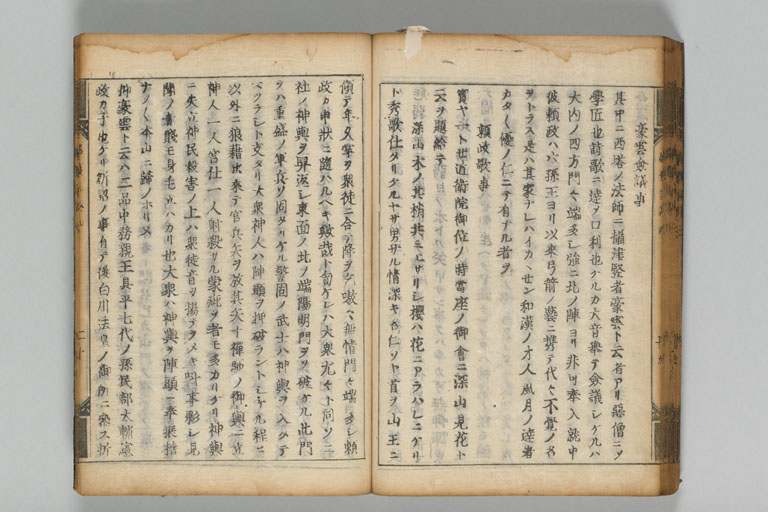 豪雲僉議事
其中ニ西塔ノ法師ニ攝津竪者豪雲ト云者アリ惡僧ニ
學匠也詩歌ニ達ノ口利也ケルカ大音擧テ僉議シケルハ
大内ノ四方門々端多シ強ニ北ノ陣ヨリ非可奉入就中
彼頼政ハ六孫王ヨリ以来弓箭ノ藝ニ携テ代々不覺ノ名
ヲトラス是ハ其家ナレハイカヽセン和漢ノオ人風月ノ達者
カタ〱優ノ仁ニテ有ナル者ヲ
頼政歌事
實ヤ一ト世近衛院御位ノ時當座ノ御會ニ深山見花ト
云ヲ題給テ
深山木ノ其梢共ミヘサリシ櫻ハ花ニアラハレニケリ
ト秀歌仕タリケルヤサ男サル情深キ名仁ソヤ首ヲ山王ニ
傾テ年久掌ヲ衆徒ニ合テ降ヲ乞嗷々無情門々端多シ頼
政カ申狀ニ隨ハルヘキ歟哉ト匐ケレハ大衆尤々ト同ソ三
社ノ神輿ヲ舁返シ東面ノ北ノ端陽明門ヲソ破ケル此門
ヲハ重盛ノ軍兵ソ固タリケル警固ノ武士ハ神輿ヲ入タテ
マツラシト支タリ大衆神人ハ陣頭ヲ押破ラントシケル程ニ
以外ニ狼藉出来テ官兵矢ヲ放其矢十禪師ノ御輿ニ立
神人一人宮仕一人射殺サル蒙疵ヲ者モ多カリケリ神輿
ニ矢立神民殺害ノ上ハ衆徒音ヲ揚テヲメキ叫事影シ見
聞ノ貴賎モ身毛立ハカリ也大衆ハ神輿ヲ陣頭ニ奉振捨
ナク〱本山ニ歸ノホリヌ
抑豪雲ト云ハ二品中務親王具平七代ノ孫民部大輔憲
政カ子也ケリ訴訟ノ事有テ後白川法皇ノ御所ニ參ス折